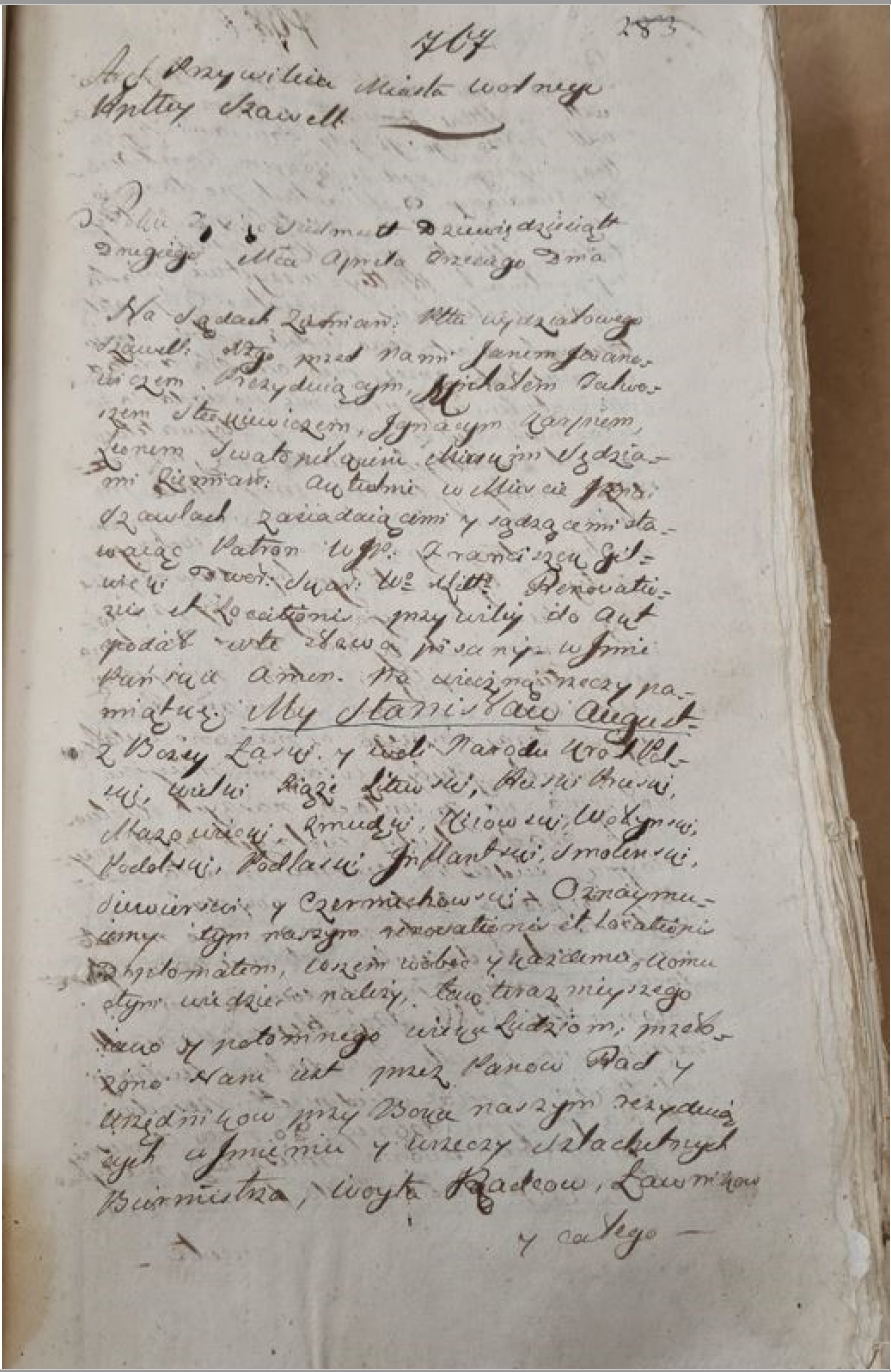 767
283
Akt Przywileiu Miasta wolnego
Rpttey Szawell.
Roku Siedmset Dziewiędziesiąt
Drugiego Mca Aprila trzeciego Dnia
Na Sądach Ziemiań: Pttu wydziałowego
Szawell: przed Nami Janem Iwano-
wiczem Prezyduiącym, Michałem
szem Ignacym Karpiem,
Sędzia-
mi Ziemiań: Aktualnie w Mieście
Szawlach zasiadaiącemi y sądzącemi sta-
waiąc Patron WJP. Franciszek
Renovatio-
nis et Locationis przywiley do Akt
podał w te słowa pisany. w Jmie
Pańskie Amen. Na wieczną rzeczy pa-
miątkę. My Stanisław August
z Bożey Łaski y woli Narodu Krol Pol-
ski, wielki Xiąże Litewski, Ruski Pruski,
Mazowiecki, Zmudzki, Kiiowski, Wołynski,
Podolski, Podlaski Inflantski, Smolenski,
Siewierski y Czerniechowski. Oznaymu-
iemy tym naszym renovationis et Locationis
Dyplomatem, wszem wobec y każdemu, komu
otym wiedzieć należy, tak teraznieyszego
iako y potomnego wieku Ludziom, przeło-
żono Nam iest przez Panow Rad y
Urzędnikow przy Boku naszym rezyduią
cych w Jmieniu y wrzeczy Szlachetnych
Burmistrza, Woyta Radcow, Ławnikow
y całego —